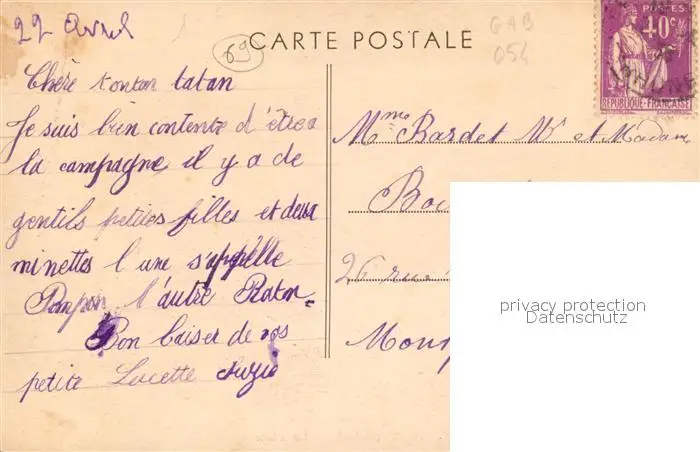 22 Avril
69
CARTE POSTALE
GAB
054
POSTES
40c
REPUBLIQUE-FRANÇAISE
Chère tonton tatan
Je suis bien contente d'être a
la campagne il y a de
gentils petites filles et deux
minettes l une s'appelle
Pompon l'autre Raton.
Bon baiser de vos
petite Lucette Suzie
Mme Bardet Mr et Madame
26 rue
privacy protection
Datenschutz